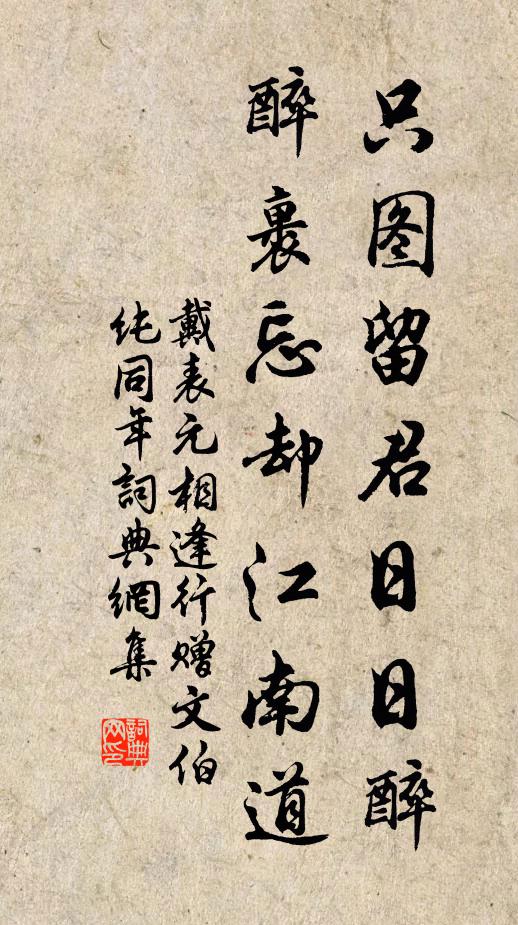 只图留君日日醉
醉裹忘却江南道
戴表元相逢行赠文伯
纯同年詞典網集
詞典
网印